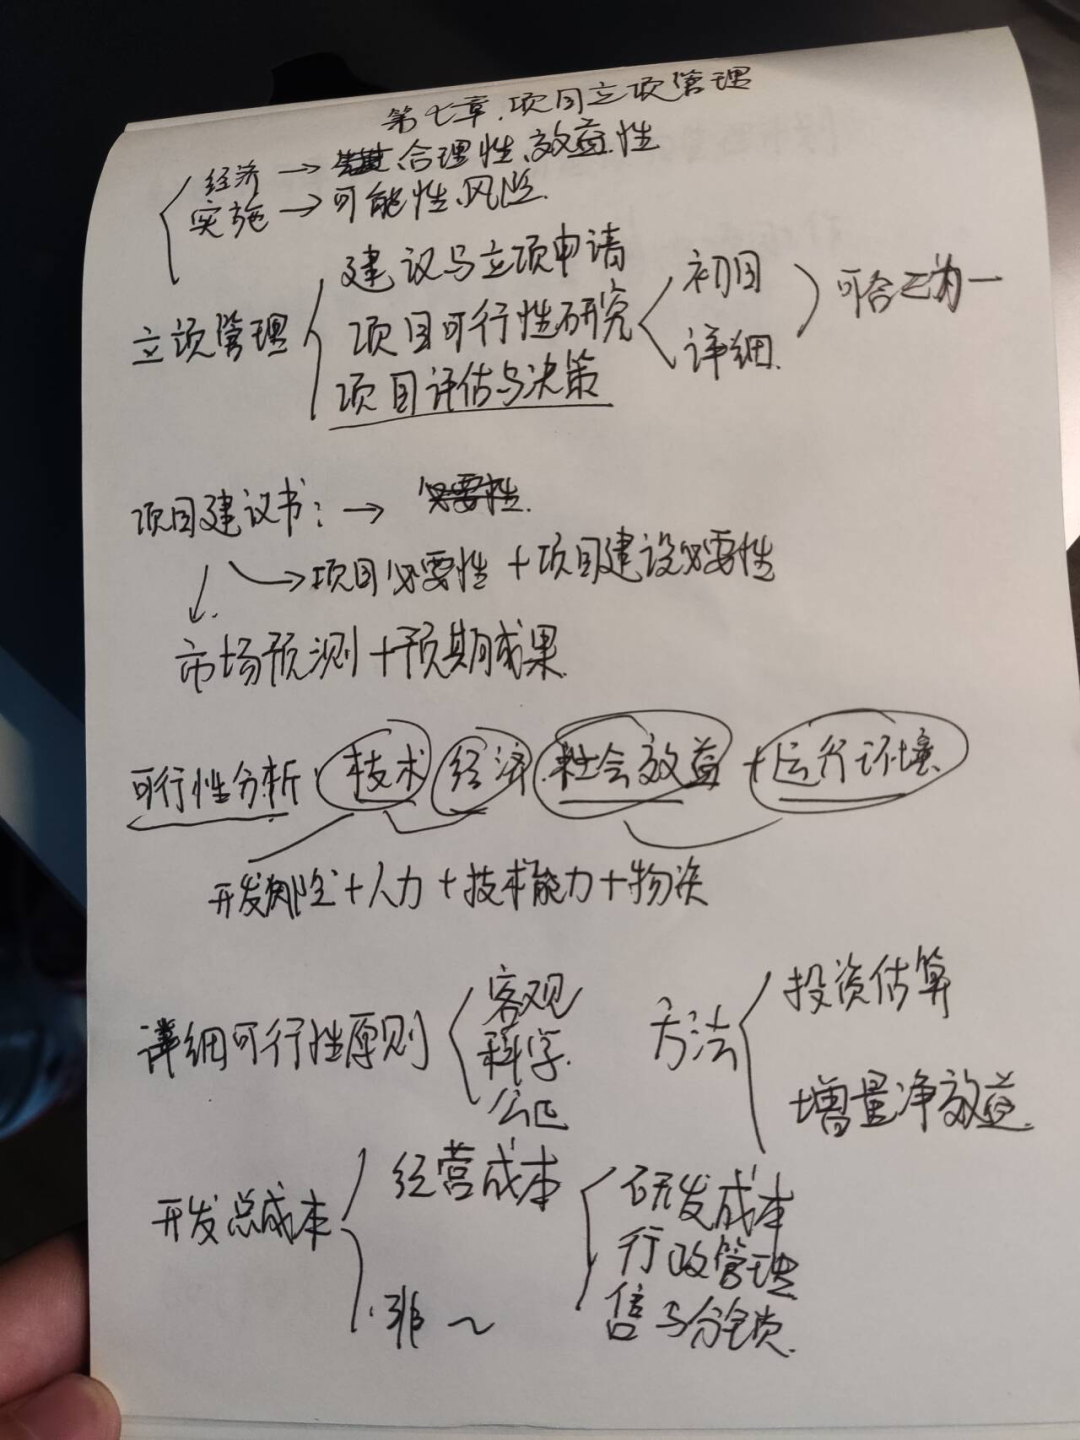 第七章.项目立项管理
经济→合理性、效益性
实施→可能性、风险.
立项管理
建议与立项申请
项目可行性研究
项目评估与决策
初目
详细.
可合二为一
项目建议书:→ 必要性.
→项目必要性+项目建设必要性
市场预测+预期成果.
可行性分析 技术 经济 社会效益+运行环境
开发+人力+技术能力+物资
详细可行性原则
客观
科学.
公正
方法
投资估算
增量净效益.
开发总成本
经营成本
非~
研发成本
行政管理
售与分销